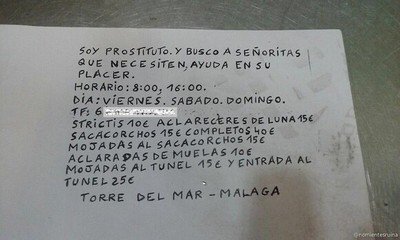 SOY PROSTITUTO. Y BUSCO A SEÑORITAS
QUE NECESITEN, AYUDA EN SU
PLACER.
HORARIO: 8:00, 16:00.
DÍA: VIERNES. SABADO. DOMINGO.
TF: 6
STRICTIS 10€ ACLARECERES DE LUNA 15€
SACACORCHOS 15€ COMPLETOS 40€
MOJADAS AL SACACORCHOS 15€
ACLARADAS DE MUELAS 10€
MOJADAS AL TUNEL 15€ Y ENTRADA AL
TUNEL 25€
TORRE DEL MAR - MALAGA
@nomientesruina